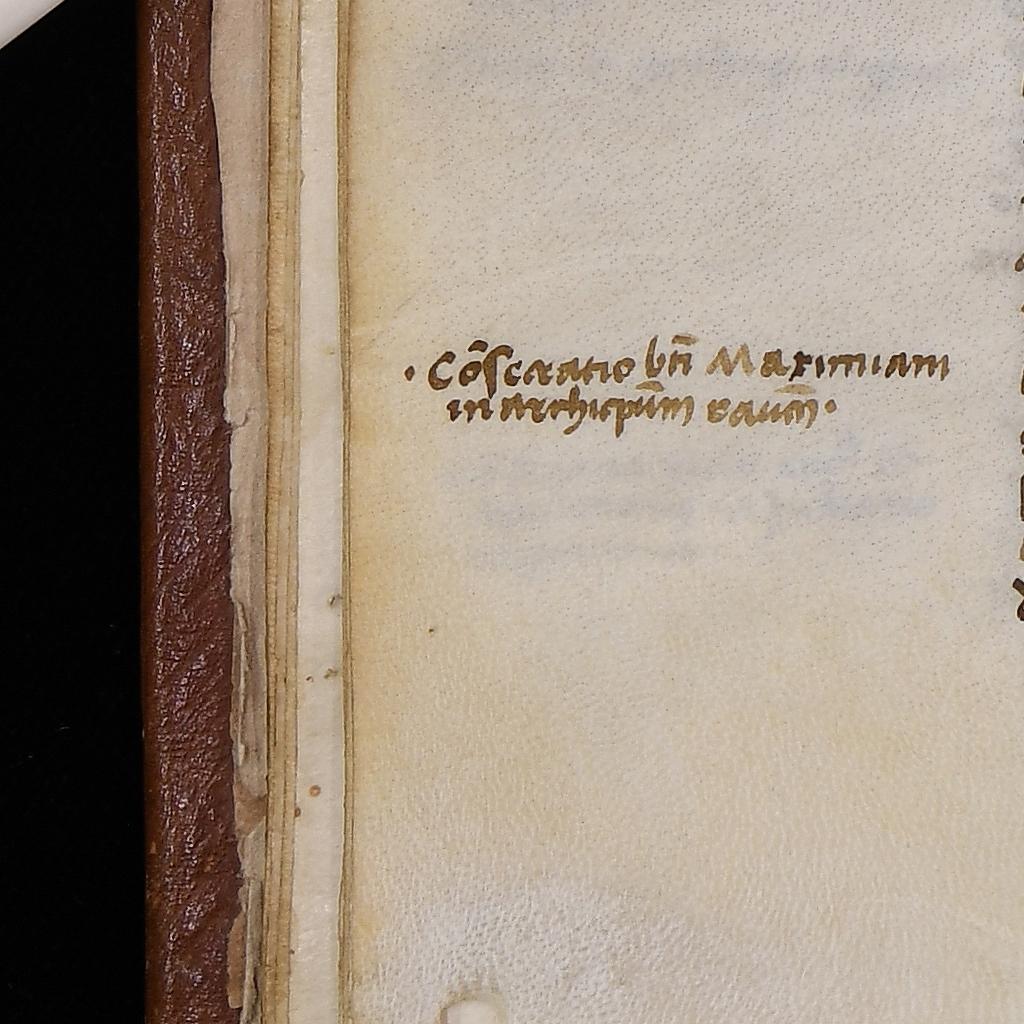 · Cōsecratio bñ Maximiani
in archiepūm ravēn ·